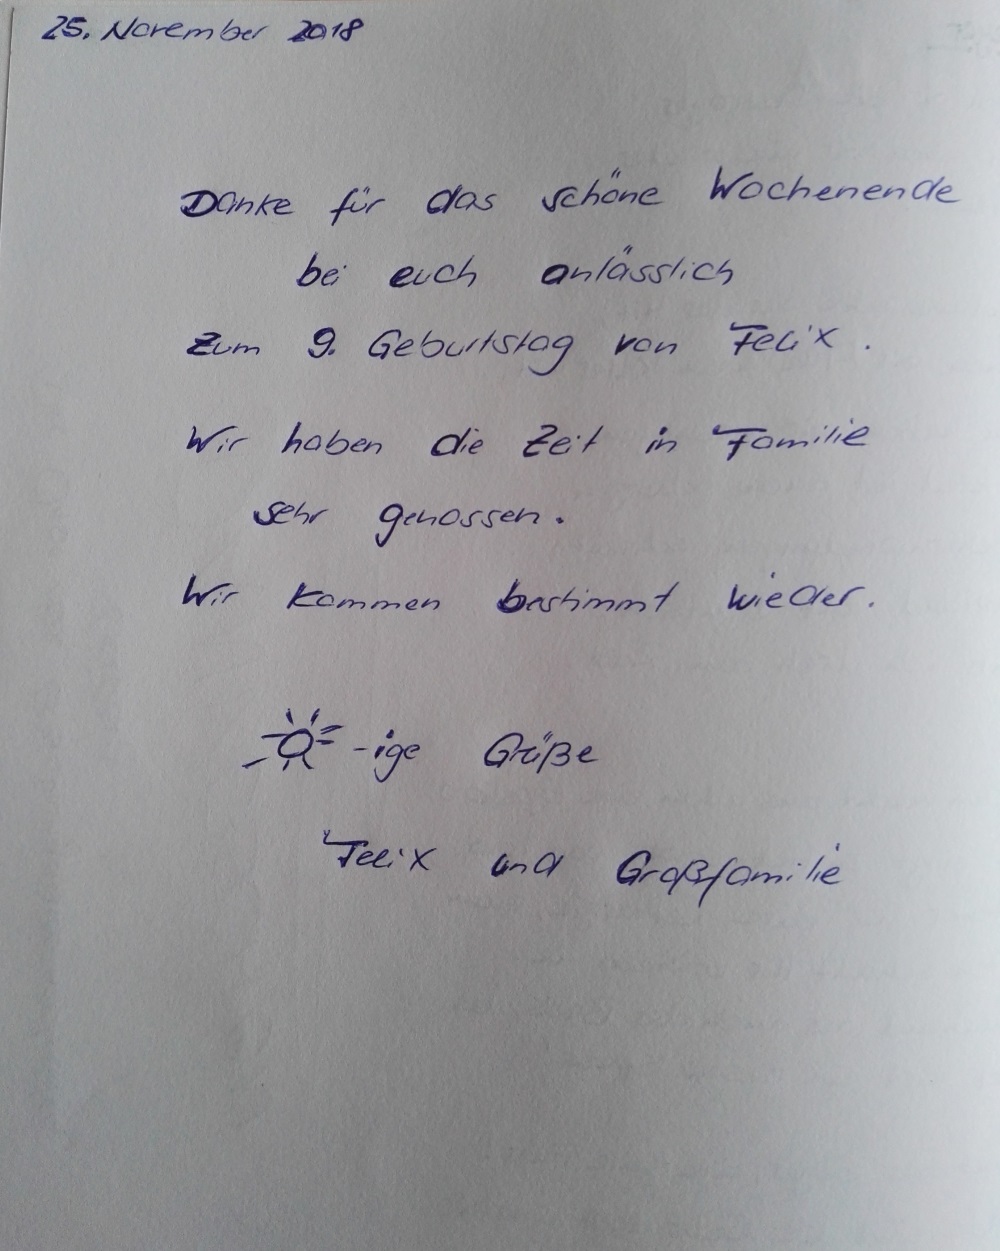 25. November 2018
Danke für das schöne Wochenende
bei euch anlässlich
zum 9. Geburtstag von Felix.
Wir haben die Zeit in Familie
sehr genossen.
Wir kommen bestimmt wieder.
-ige Grüße
Felix und Großfamilie